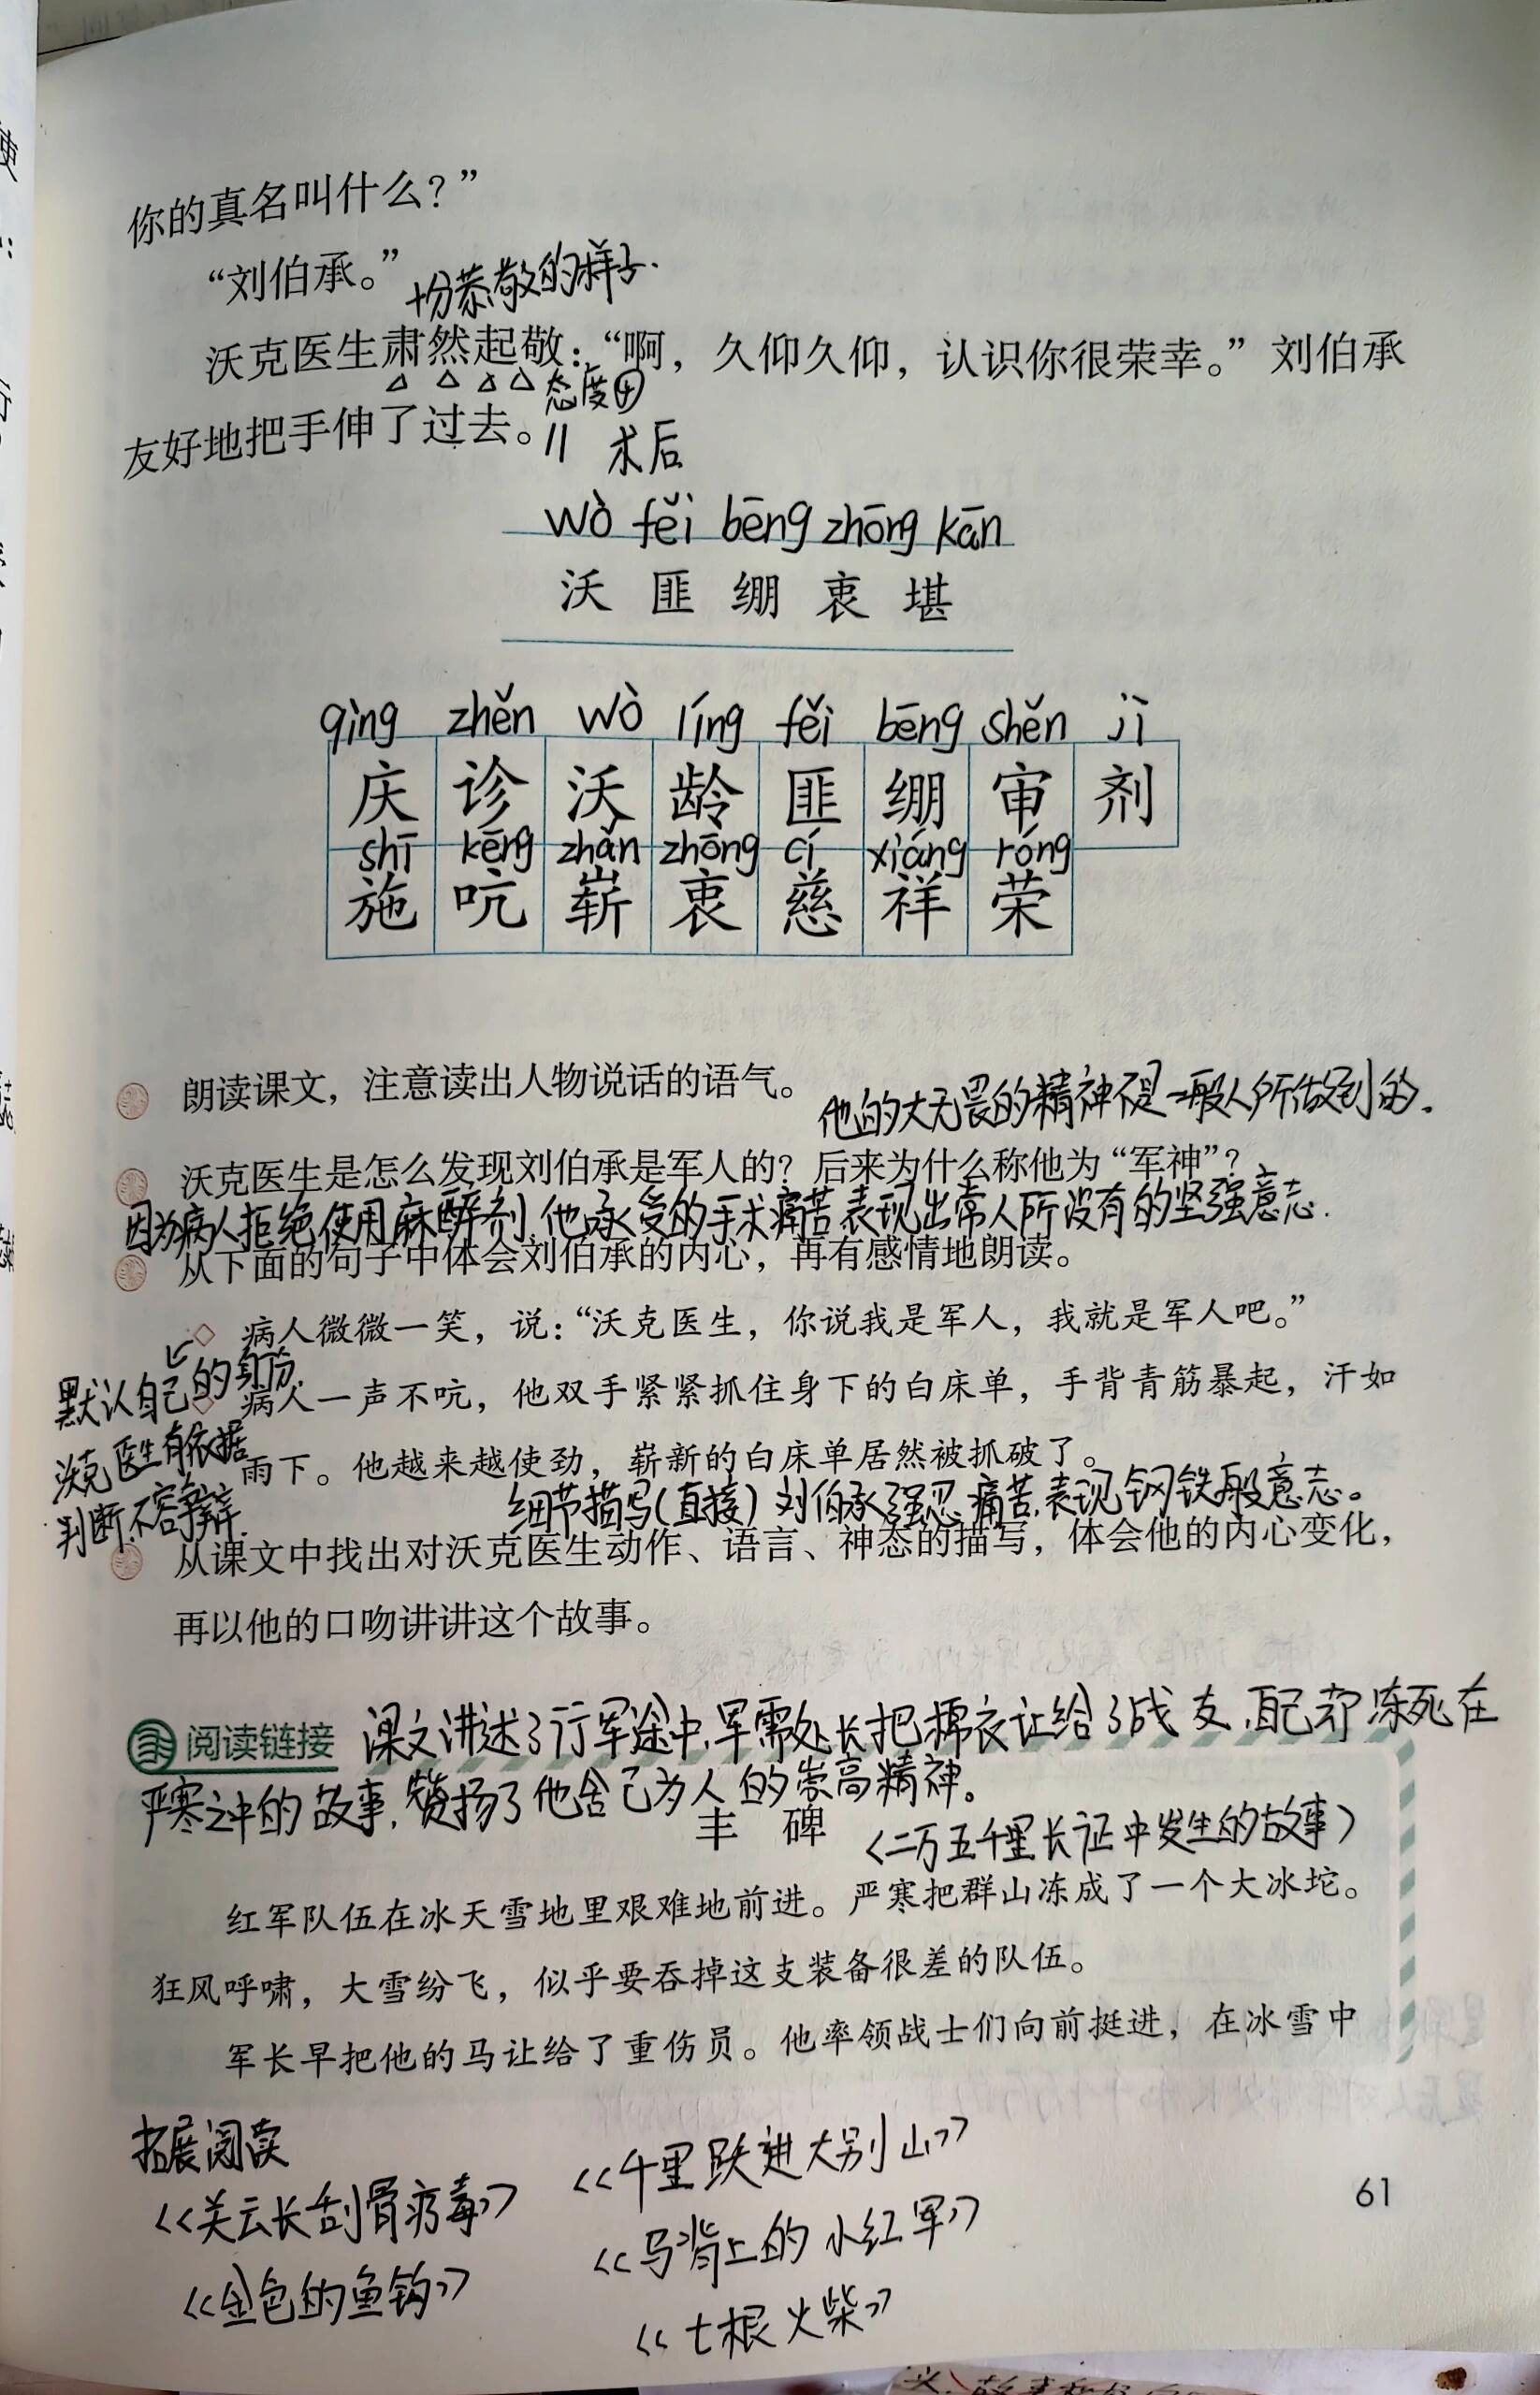 你的真名叫什么？”
“刘伯承。”
十分恭敬的样子.
沃克医生肃然起敬：“啊，久仰久仰，认识你很荣幸。”刘伯承
态度④
友好地把手伸了过去。 // 术后
wò fěi bēng zhōng kān
沃 匪 绷 衷 堪
qìng zhěn wò líng fěi bēng shěn jì
庆 诊 沃 龄 匪 绷 审 剂
shī kēng zhǎn zhōng cí xiáng róng
施 吭 崭 衷 慈 祥 荣
朗读课文，注意读出人物说话的语气。
他的大无畏的精神不是一般人所做到的.
沃克医生是怎么发现刘伯承是军人的？后来为什么称他为“军神”？
因为病人拒绝使用麻醉剂,他承受的手术痛苦表现出常人所没有的坚强意志.
从下面的句子中体会刘伯承的内心，再有感情地朗读。
病人微微一笑，说：“沃克医生，你说我是军人，我就是军人吧。”
默认自己的身份,
病人一声不吭，他双手紧紧抓住身下的白床单，手背青筋暴起，汗如
沃克医生有依据
雨下。他越来越使劲，崭新的白床单居然被抓破了。
判断,不容争辩.
细节描写(直接)刘伯承强忍痛苦,表现钢铁般意志。
从课文中找出对沃克医生动作、语言、神态的描写，体会他的内心变化，
再以他的口吻讲讲这个故事。
阅读链接
课文讲述了行军途中,军需处长把棉衣让给了战友,自己却冻死在
严寒之中的故事,赞扬了他舍己为人的崇高精神。
丰 碑
<二万五千里长征中发生的故事>
红军队伍在冰天雪地里艰难地前进。严寒把群山冻成了一个大冰坨。
狂风呼啸，大雪纷飞，似乎要吞掉这支装备很差的队伍。
军长早把他的马让给了重伤员。他率领战士们向前挺进，在冰雪中
拓展阅读
<<关云长刮骨疗毒>>
<<金色的鱼钩>>
<<千里跃进大别山>>
<<马背上的小红军>>
<<七根火柴>>
61